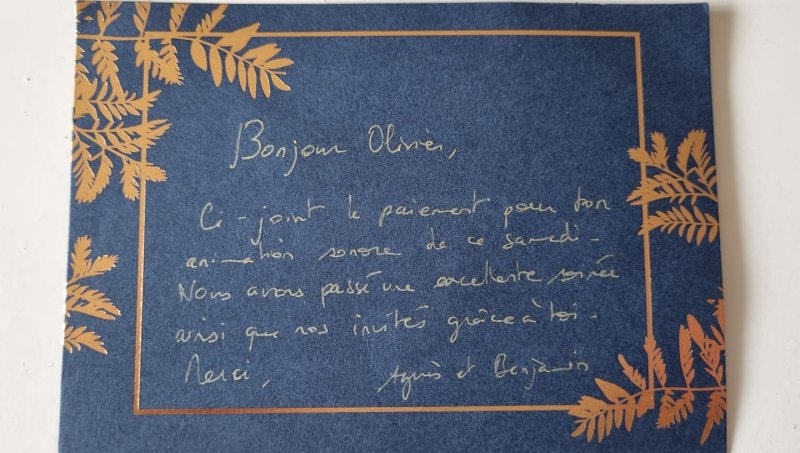 Bonjour Olivier,
Ci-joint le paiement pour ton
animation sonore de ce samedi.
Nous avons passé une excellente soirée
ainsi que nos invités grâce à toi.
Merci,
Agnès et Benjamin